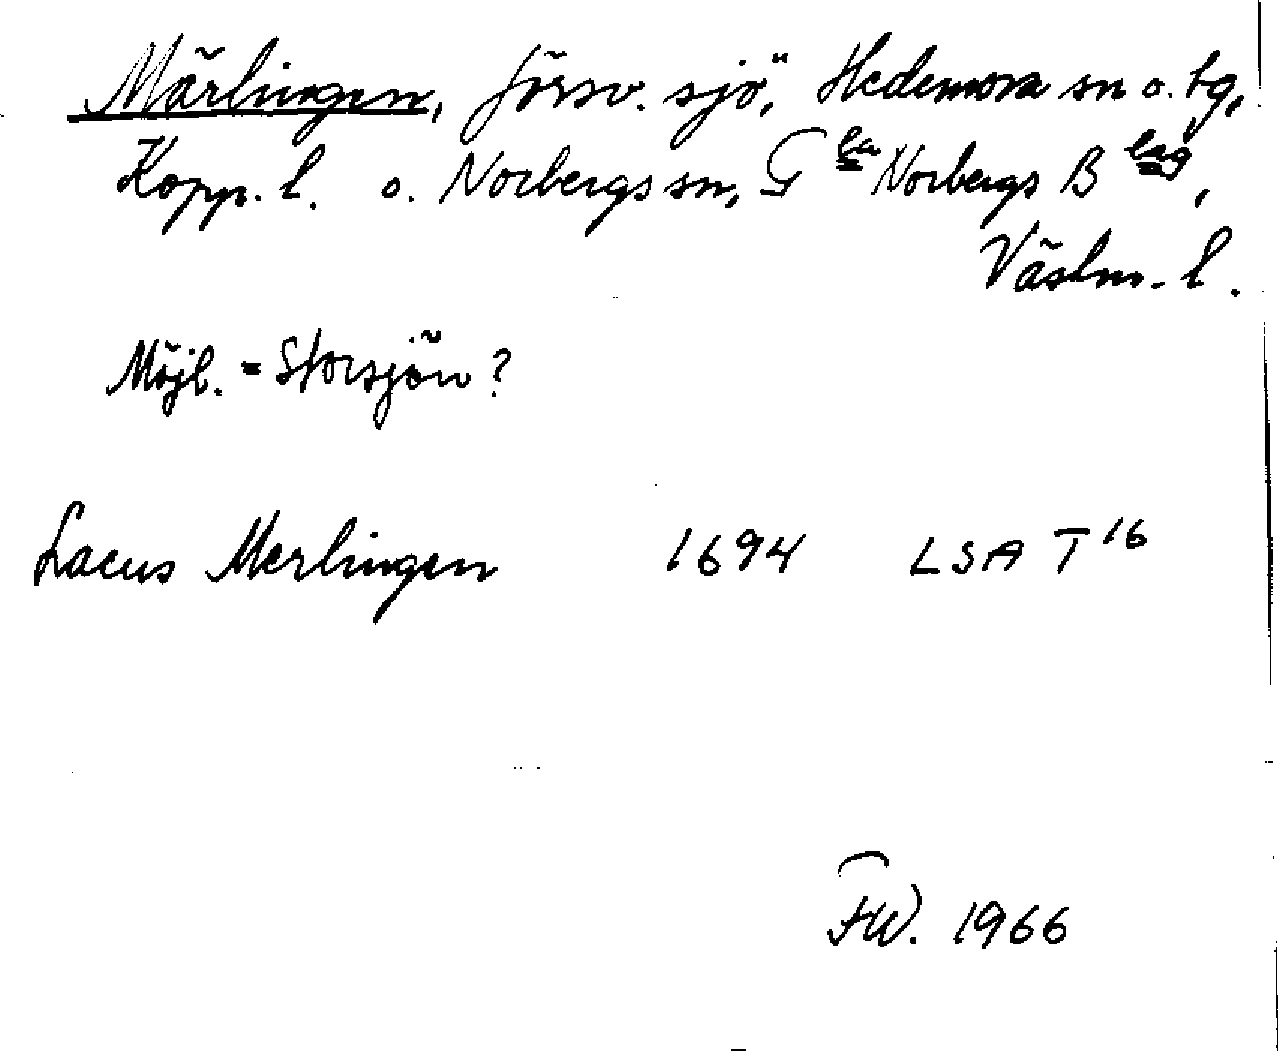 Märlingen, försv. sjö, Hedemora sn o. tg,
Kopp. l. o. Norbergs sn, G la Norbergs B lag,
Västm. l.
Möjl. = Storsjön?
Lacus Merlingen 1694 LSA T 16
FW. 1966